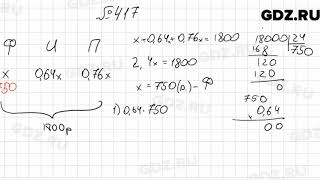 GDZ.RU
№417
Ф И П
x 0,64x 0,76x
750
1800р
x+0,64x+0,76x=1800
2,4x=1800
x=750(р.)-Ф
1) 0,64·750
18000 24
168 750
120
120
0
750
× 0,64
00